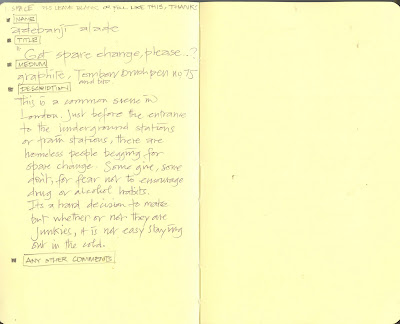 PLEASE LEAVE BLANK OR FILL LIKE THIS, THANKS!
NAME
adebanji alade
TITLE
"Get spare change, please..?
MEDIUM
graphite, Tombow brush pen no 75
and biro
DESCRIPTION
This is a common scene in
London. Just before the entrance
to the underground stations
or train stations, there are
homeless people begging for
spare change. Some give, some
don't, for fear not to encourage
drug or alcohol habits.
Its a hard decision to make
but whether or not they are
junkies, it is not easy staying
out in the cold.
ANY OTHER COMMENTS